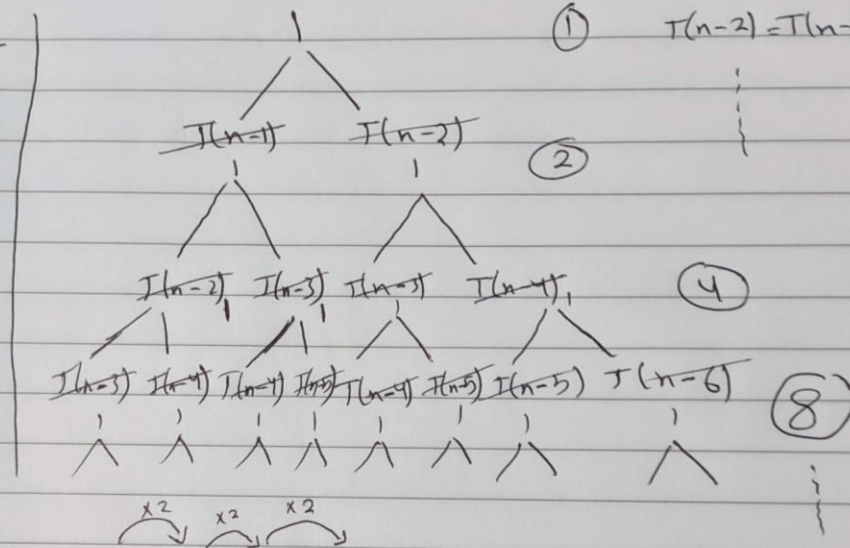 1 ① T(n-2)=T(n-
T(n-1) T(n-2)
1 1 ②
T(n-2) T(n-3) T(n-3) T(n-4) ④
1 1 1 1
T(n-3) T(n-4) T(n-4) T(n-5) T(n-4) T(n-5) T(n-5) T(n-6) ⑧
1 1 1 1 1 1 1 1
x2 x2 x2